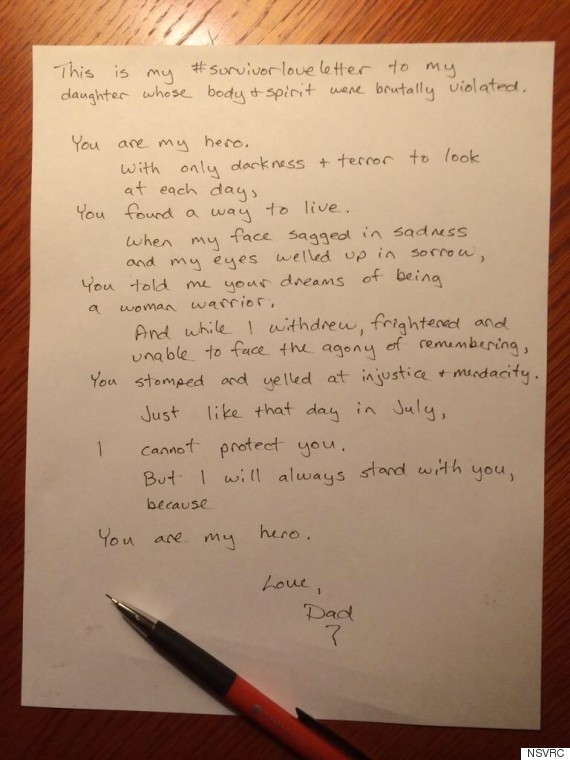 This is my #survivorloveletter to my
daughter whose body + spirit were brutally violated.
You are my hero.
With only darkness + terror to look
at each day,
You found a way to live.
When my face sagged in sadness
and my eyes welled up in sorrow,
You told me your dreams of being
a woman warrior.
And while I withdrew, frightened and
unable to face the agony of remembering,
You stomped and yelled at injustice + mendacity.
Just like that day in July,
I cannot protect you.
But I will always stand with you,
because
You are my hero.
Love,
Dad
NSVRC